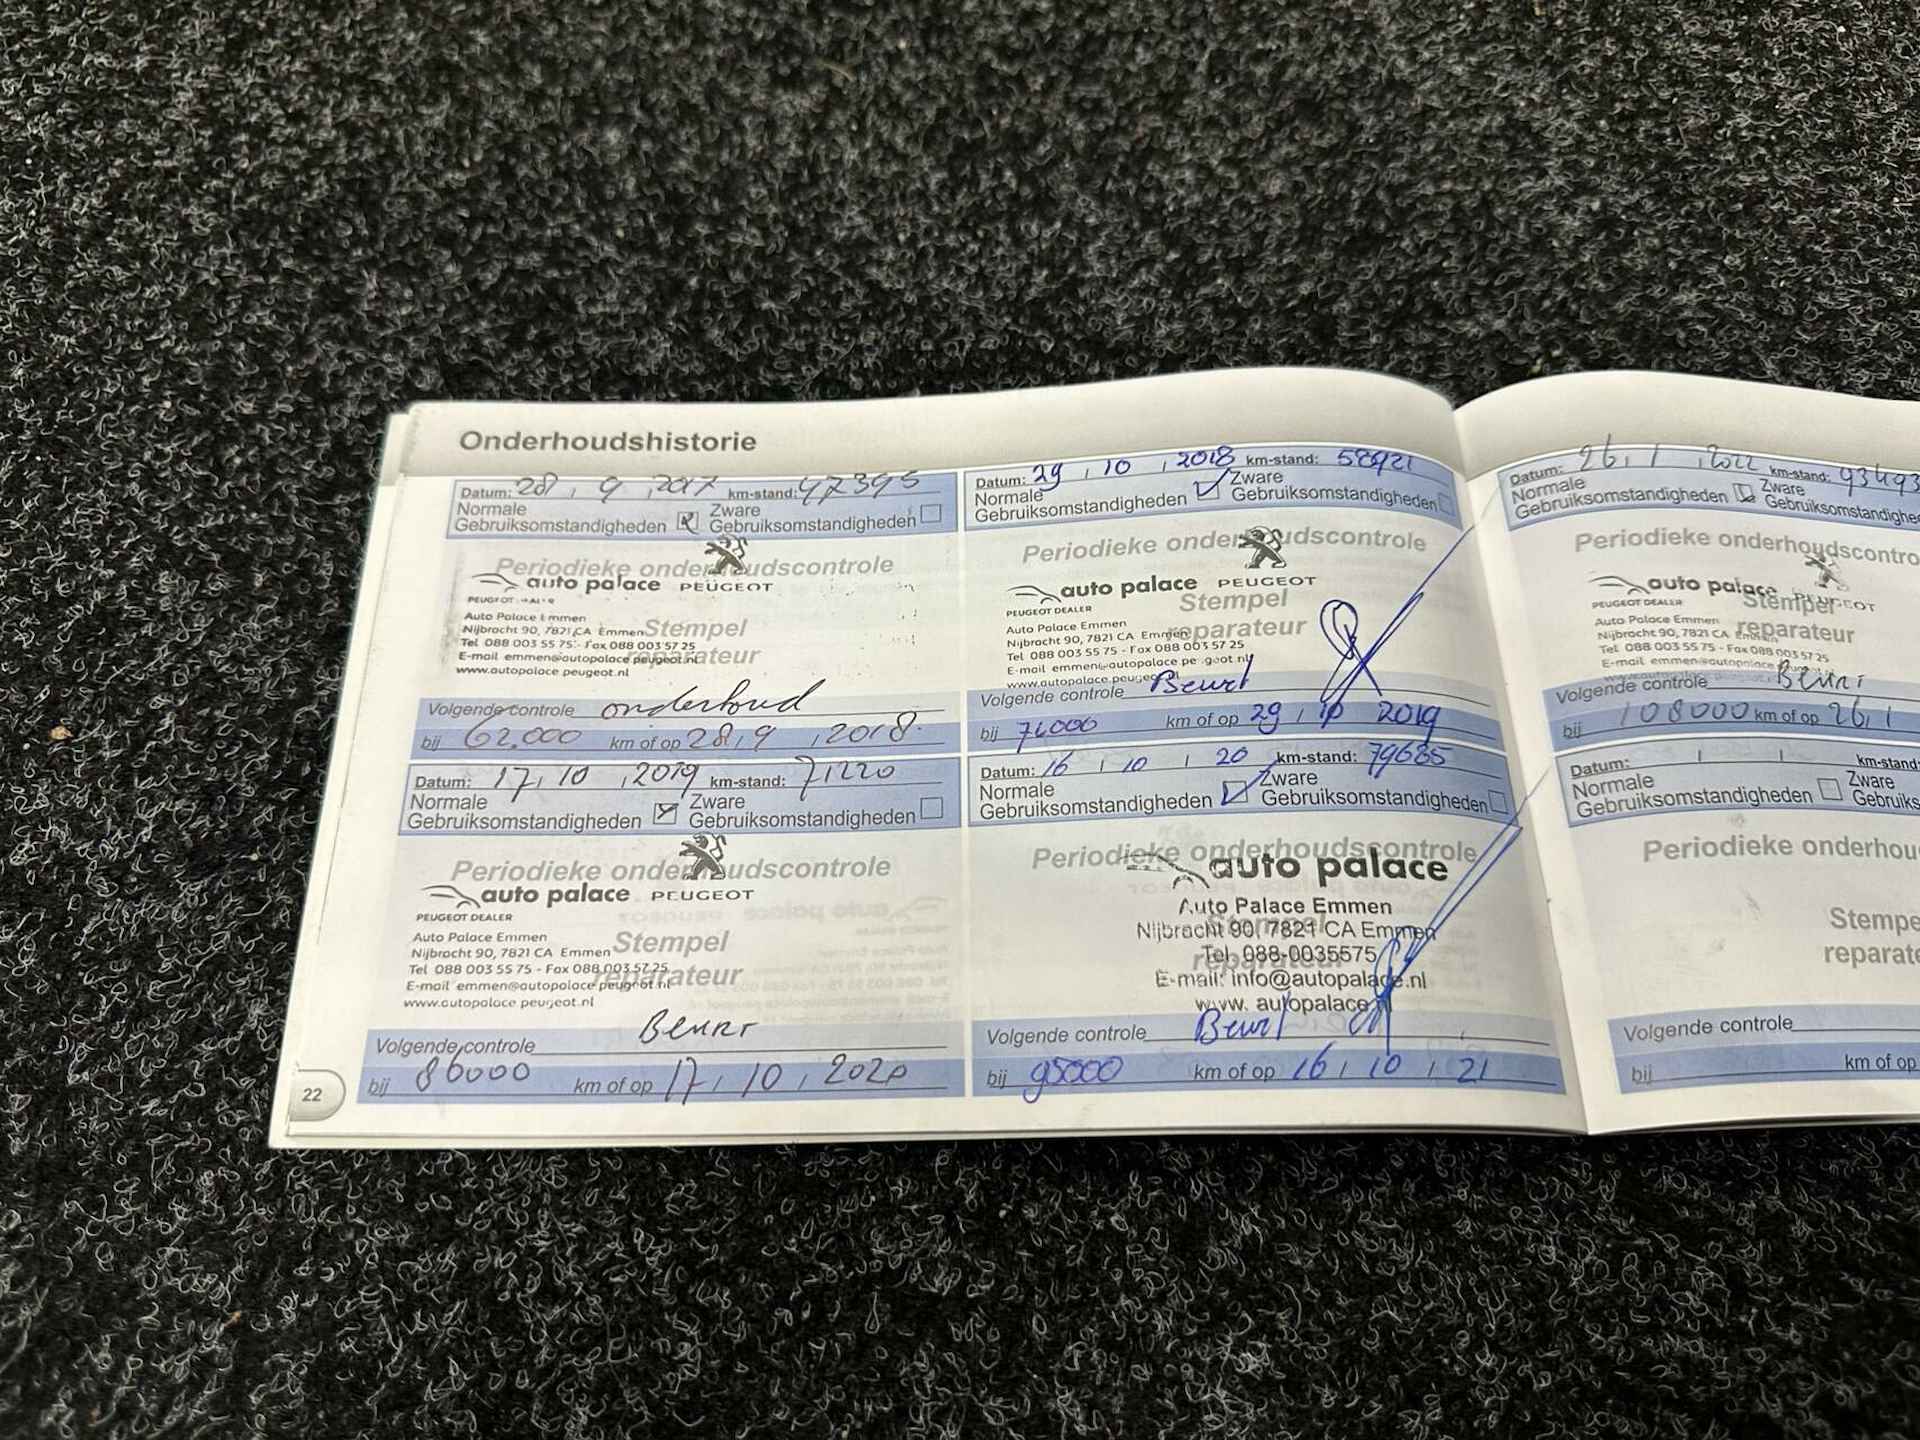 Onderhoudshistorie
Datum: 28 , 9 , 2017 km-stand: 47395
Normale
Gebruiksomstandigheden
Zware
Gebruiksomstandigheden
Periodieke onderhoudscontrole
auto palace PEUGEOT
Auto Palace Emmen
Nijbracht 90, 7821 CA Emmen
Stempel
Tel 088 003 55 75 - Fax 088 003 57 25
reparateur
E-mail emmen@autopalace.peugeot.nl
www.autopalace.peugeot.nl
Volgende controle onderhoud
bij 62.000 km of op 28, 9 , 2018
Datum: 29 , 10 , 2018 km-stand: 58921
Normale
Gebruiksomstandigheden
Zware
Gebruiksomstandigheden
Periodieke onderhoudscontrole
auto palace PEUGEOT
PEUGEOT DEALER
Stempel
Auto Palace Emmen
Nijbracht 90, 7821 CA Emmen
reparateur
Tel 088 003 55 75 - Fax 088 003 57 25
E-mail emmen@autopalace.peugeot.nl
www.autopalace.peugeot.nl
Volgende controle Beurt
bij 74000 km of op 29 , 10 2019
Datum: 17, 10 , 2019 km-stand: 71220
Normale
Gebruiksomstandigheden
Zware
Gebruiksomstandigheden
Periodieke onderhoudscontrole
auto palace PEUGEOT
PEUGEOT DEALER
Auto Palace Emmen
Nijbracht 90, 7821 CA Emmen
Stempel
Tel 088 003 55 75 - Fax 088 003 57 25
reparateur
E-mail emmen@autopalace.peugeot.nl
www.autopalace.peugeot.nl
Volgende controle Beurt
bij 86000 km of op 17, 10 , 2020
22
Datum: 16 , 10 , 20 km-stand: 79685
Normale
Gebruiksomstandigheden
Zware
Gebruiksomstandigheden
Periodieke onderhoudscontrole
auto palace
Auto Palace Emmen
Stempel
Nijbracht 90, 7821 CA Emmen
Tel. 088-0035575
reparateur
E-mail: info@autopalace.nl
www. autopalace.nl
Volgende controle Beurt
bij 95000 km of op 16 , 10 , 21
Datum: 26, 1 , 2022 km-stand: 93493
Normale
Gebruiksomstandigheden
Zware
Gebruiksomstandighe
Periodieke onderhoudscontro
auto palace PEUGEOT
PEUGEOT DEALER
Stempel
Auto Palace Emmen
Nijbracht 90, 7821 CA Emmen
reparateur
Tel 088 003 55 75 - Fax 088 003 57 25
E-mail emmen@autopalace
Volgende controle Beurt
bij 108000 km of op 26, 1
Datum: , , km-stand:
Normale
Gebruiksomstandigheden
Zware
Gebruiks
Periodieke onderhou
Stempe
reparate
Volgende controle
bij km of op